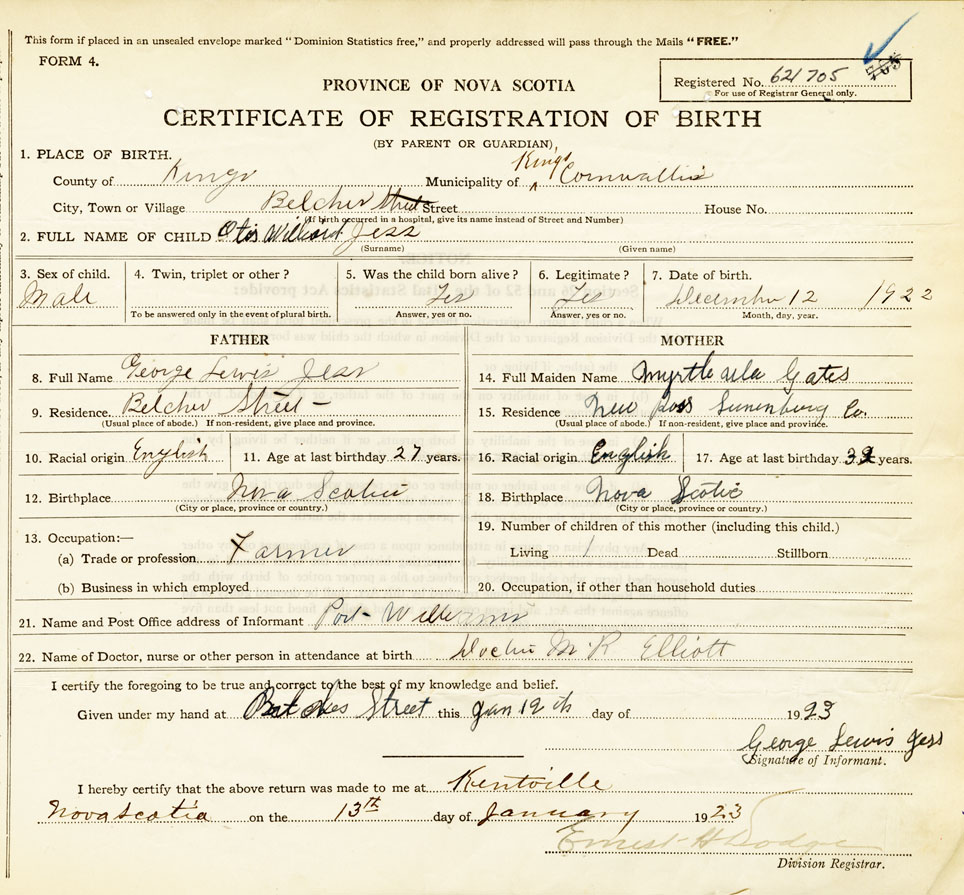 This form if placed in an unsealed envelope marked "Dominion Statistics free," and properly addressed will pass through the Mails "FREE."
FORM 4.
Registered No. 621705 765
For use of Registrar General only.
PROVINCE OF NOVA SCOTIA
CERTIFICATE OF REGISTRATION OF BIRTH
(BY PARENT OR GUARDIAN)
1. PLACE OF BIRTH.
County of Kings Municipality of Kings Cornwallis
City, Town or Village Belcher Street Street House No.
(If birth occurred in a hospital, give its name instead of Street and Number)
2. FULL NAME OF CHILD Otis Williard Jess
(Surname) (Given name)
3. Sex of child. 4. Twin, triplet or other? 5. Was the child born alive? 6. Legitimate? 7. Date of birth.
Male Yes Yes December 12 1922
To be answered only in the event of plural birth. Answer, yes or no. Answer, yes or no. Month, day, year.
FATHER MOTHER
8. Full Name George Lewis Jess 14. Full Maiden Name Myrtle Gates
9. Residence. Belcher Street 15. Residence New Ross Lunenburg Co.
(Usual place of abode.) If non-resident, give place and province. (Usual place of abode.) If non-resident, give place and province.
10. Racial origin English 11. Age at last birthday 27 years. 16. Racial origin English 17. Age at last birthday years.
12. Birthplace Nova Scotia 18. Birthplace Nova Scotia
(City or place, province or country.) (City or place, province or country.)
13. Occupation:— 19. Number of children of this mother (including this child.)
(a) Trade or profession Farmer Living 1 Dead Stillborn
(b) Business in which employed 20. Occupation, if other than household duties
21. Name and Post Office address of Informant Port Williams
22. Name of Doctor, nurse or other person in attendance at birth Doctor M R Elliott
I certify the foregoing to be true and correct to the best of my knowledge and belief.
Given under my hand at Street this Jan 12th day of 1923
George Lewis Jess
Signature of Informant.
I hereby certify that the above return was made to me at Kentville
Nova Scotia on the 13th day of January 1923
Ernest H Dodge
Division Registrar.